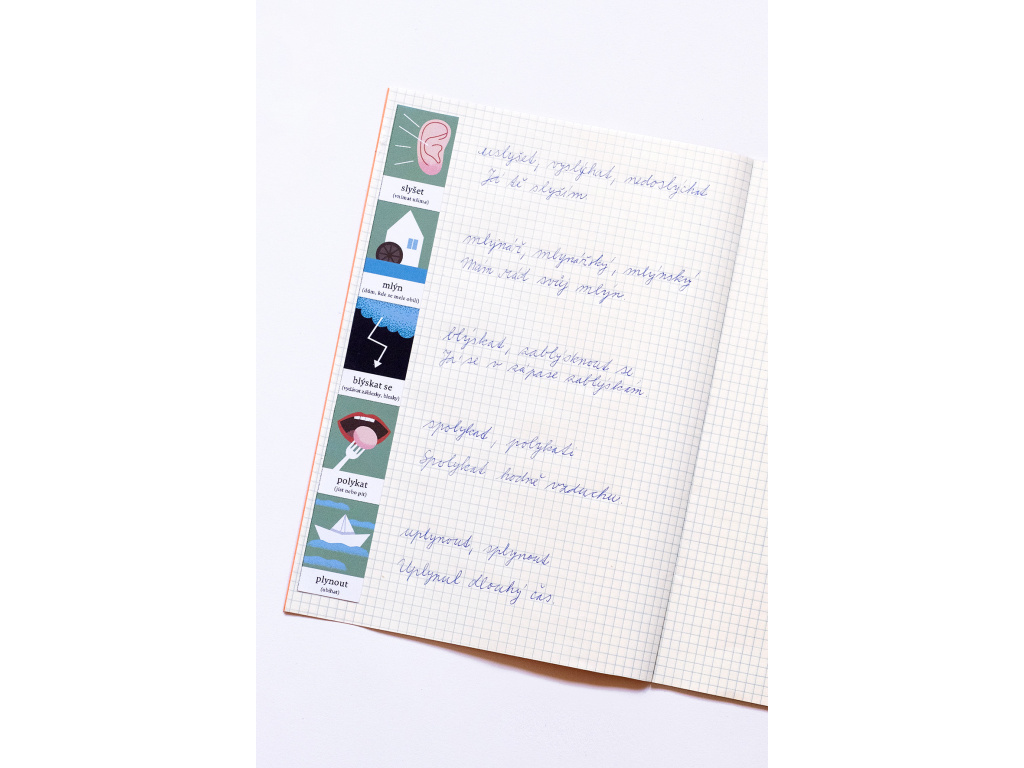 slyšet
(vnímat ušima)
uslyšet, vyslýchat, nedoslýchat
Já tě slyším.
mlýn
(dům, kde se mele obilí)
mlýnář, mlynářský, mlýnský
Mám rád svůj mlýn.
blýskat se
(vydávat záblesky, blesky)
blýskat, zablýsknout se
Já se v zápase zablýskám.
polykat
(jíst nebo pít)
spolykat, polykati
Spolykat hodně vzduchu.
plynout
(ubíhat)
uplynout, splynout
Uplynul dlouhý čas.